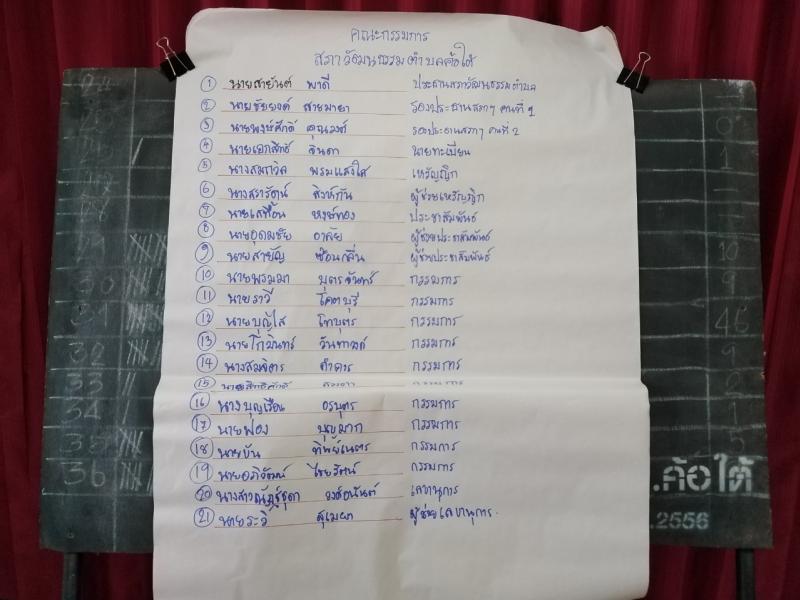 คณะกรรมการ
สภาวัฒนธรรมตำบลค้อใต้
1 นายสายันต์ พาดี ประธานสภาวัฒนธรรมตำบล
2 นายชัยยงค์ สายมายา รองประธานสภาฯ คนที่ 1
3 นายพงษ์ศักดิ์ คุณวงศ์ รองประธานสภาฯ คนที่ 2
4 นายเอกสิทธิ์ จินดา นายทะเบียน
5 พรมแสงใส เหรัญญิก
6 นางสรารัตน์ สิงห์กัน ผู้ช่วยเหรัญญิก
7 หงษ์ทอง ประชาสัมพันธ์
8 นายอุดมชัย อาลัย ผู้ช่วยประชาสัมพันธ์
9 นายสายัญ ซ้อนกลิ่น ผู้ช่วยประชาสัมพันธ์
10 นายพรมมา บุตรจันทร์ กรรมการ
11 นายราวี โคตบุรี กรรมการ
12 นายบุญใส โทบุตร กรรมการ
13 นายโกมินทร์ กรรมการ
14 นางสมจิตร คำดาร กรรมการ
15 กรรมการ
16 นางบุญเรือน อรบุตร กรรมการ
17 นายฟอง บุญมาก กรรมการ
18 นายบัน ทิพย์เนตร กรรมการ
19 นายอภิวัฒน์ ไชยรัตน์ กรรมการ
20 นางสาวณัฏฐ์ชุดา วงศ์อนันต์ เลขานุการ
21 นายระวี สุเมยา ผู้ช่วยเลขานุการ
31
32
33
34
35
36
46
9
2
1
5
.ค้อใต้
.2556